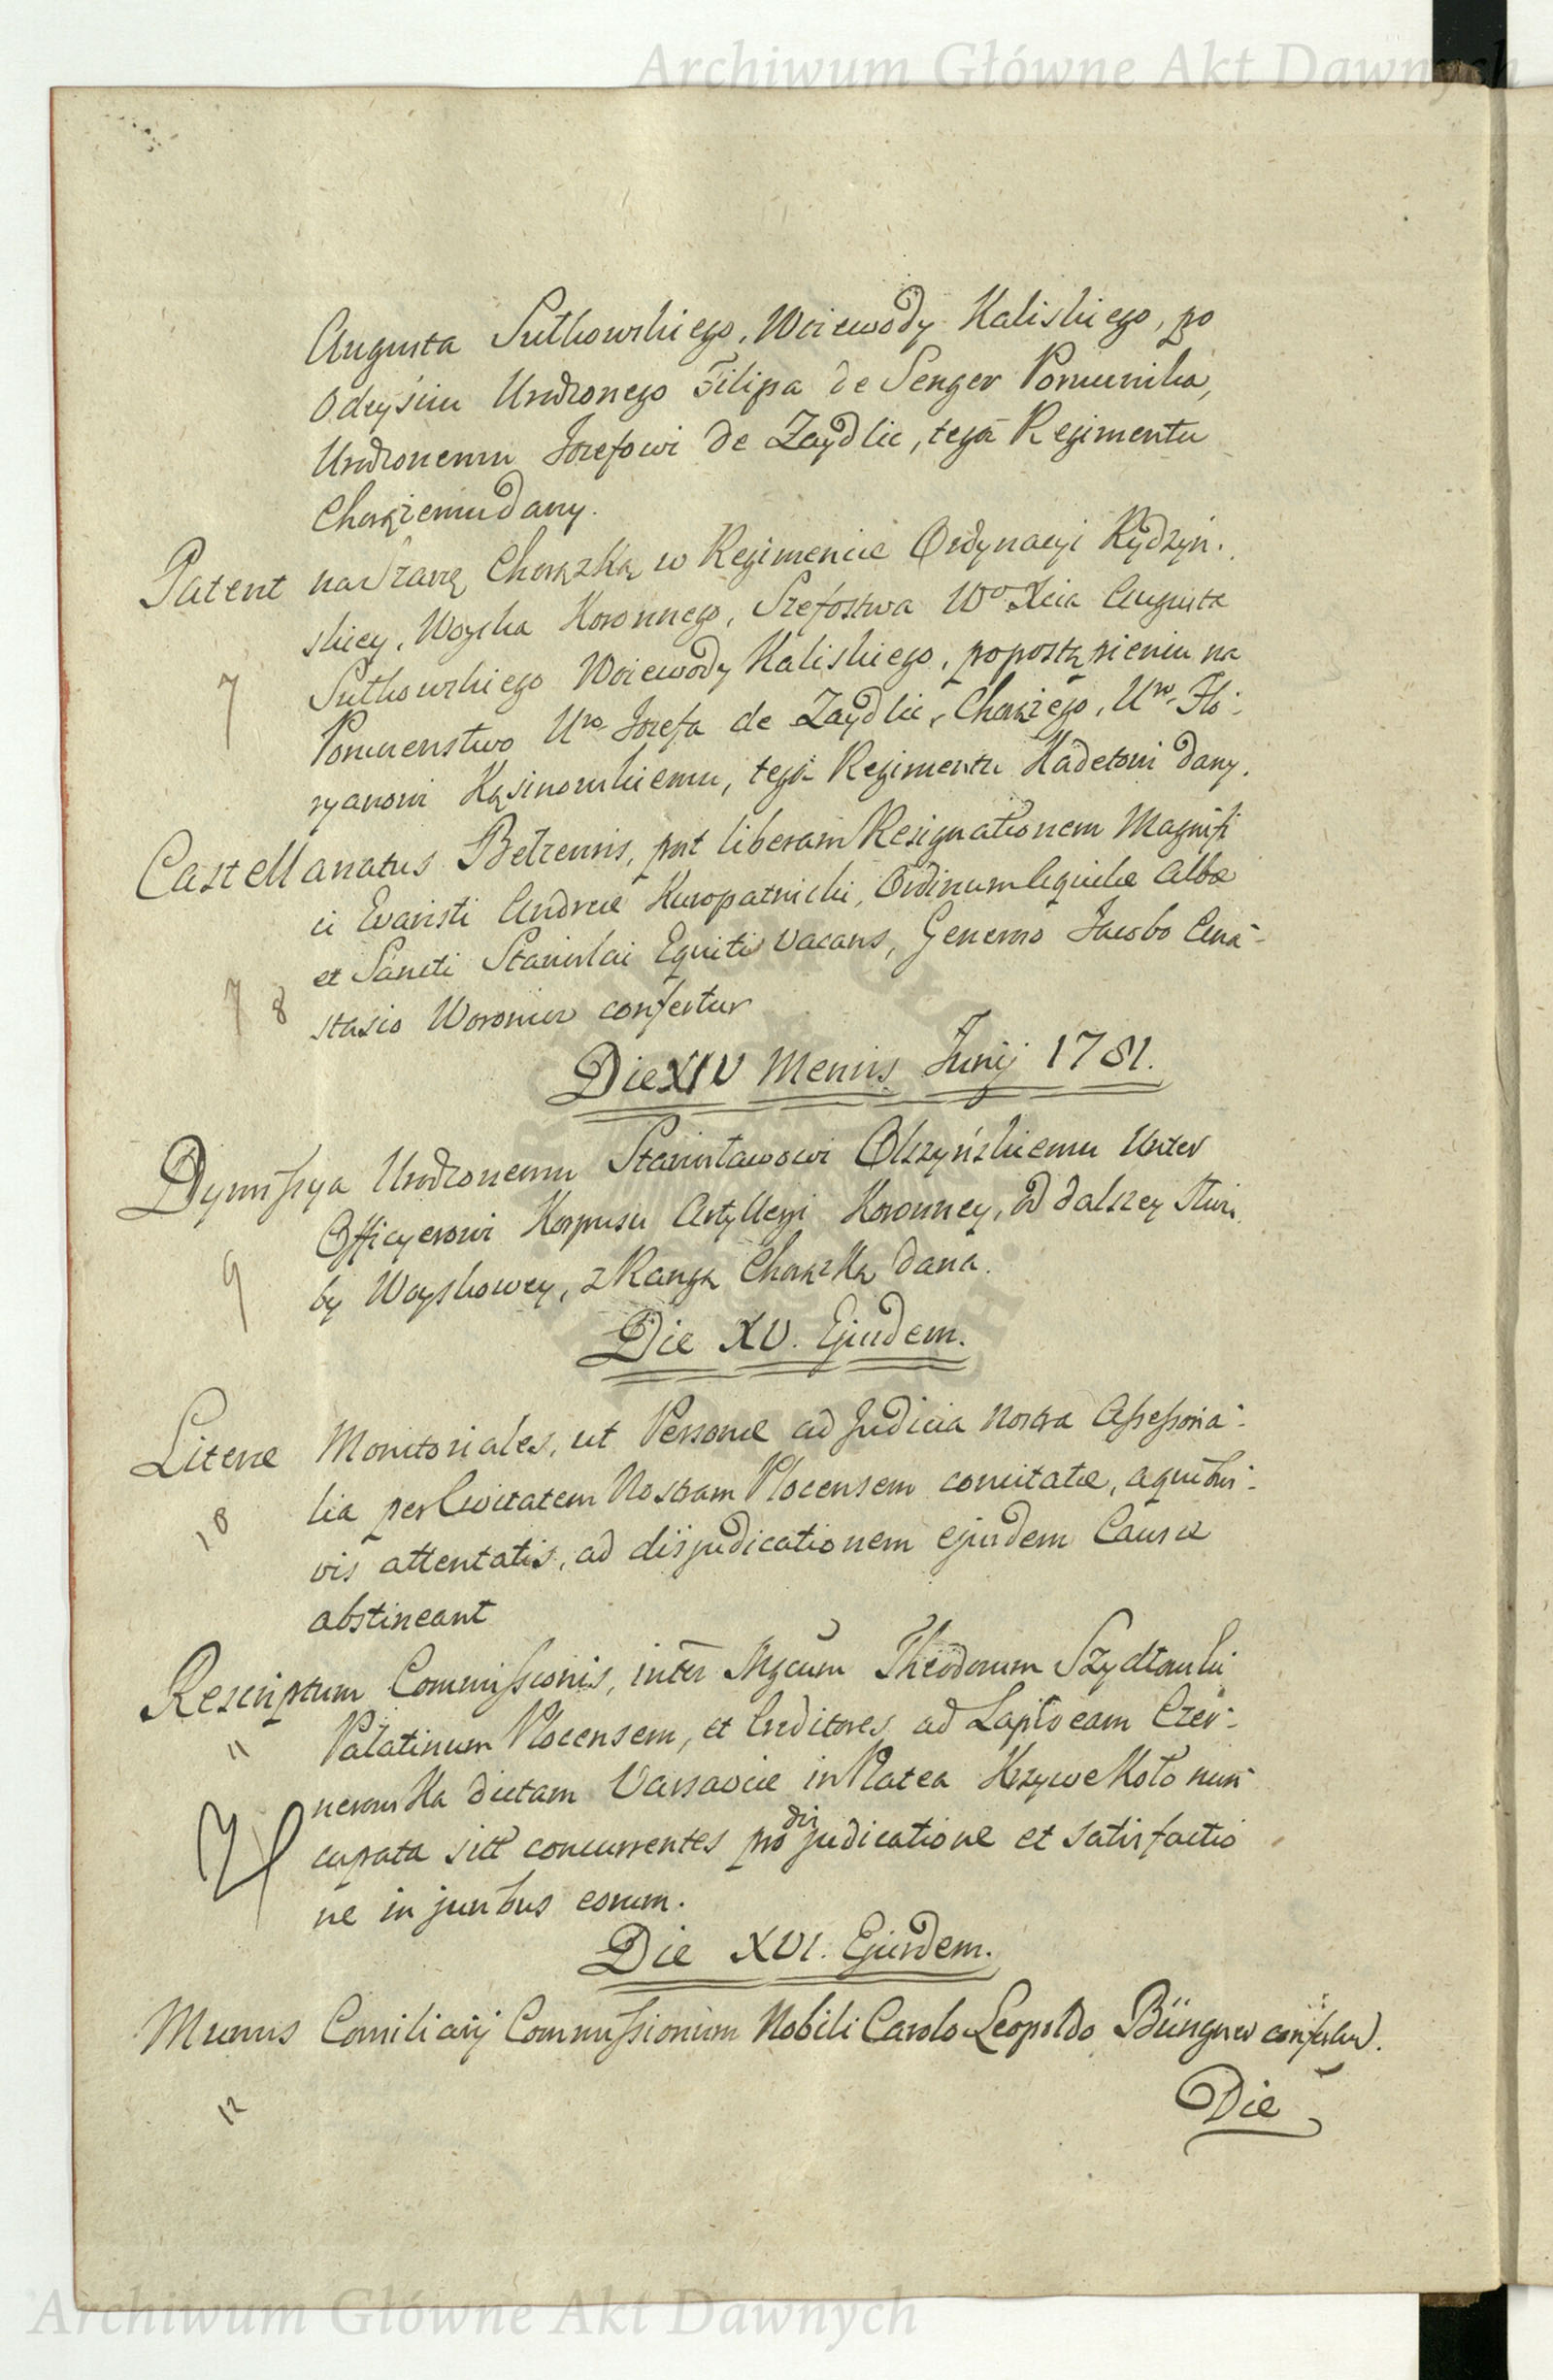 Archiwum Główne Akt Dawnych
Augusta Sułkowskiego, Woiewody Kaliskiego, po
Odeyściu Urodzonego Filipa de Senger Porucznika,
Urodzonemu Jozefowi de Zaydlic, tegō Regimentu
Chorążemu dany.
Patent na Szarżę Chorążką w Regimencie Ordynacyi Rydzyń:
skiey, Woyska Koronnego, Szefostwa Wo Xcia Augusta
7
Sułkowskiego Woiewody Kaliskiego, po postąpieniu na
Porucznstwo Uro Jozefa de Zaydlic, Chorążego, Uro Flo:
ryanowi Kąsinowskiemu, tegō Regimentu Kadetowi dany.
Castellanatus Bełzensis, post liberam Resignationem Magnifi
ci Evaristi Andreæ Kuropatnicki, Ordinum Aquilæ Albæ
et Sancti Stanislai Equitis vacans, Generoso Jacobo Ana-
7 8
stasio Woronicz confertur
Die XIV Mensis Junij 1781.
Dymissya Urodzonemu Stanisławowi Olszyńskiemu Unter
Officyerowi Korpusu Artylleryi Koronney, od dalszey Służ:
9
by Woyskowey, z Rangą Chorążką dana.
Die XV. Ejusdem.
Literæ Monitoriales, ut Personæ ad Judicia Nostra Assessoria-
lia per Civitatem Nostram Plocensem comitatæ, a quibus-
10
vis attentatis, ad disjudicationem ejusdem Causæ
abstineant
Rescriptum Commissionis, inter Mgcum Theodorum Szydłowski
Palatinum Plocensem, et Creditores ad Lapideam Czer-
11
newska dictam Varsaviæ in Platea Krzywe Koło nun-
cupata sitā concurrentes pro disjudicatione et satisfactio
ne in juribus eorum.
Die XVI. Ejusdem.
Munus Consiliarij Commissionum Nobili Carolo Leopoldo Büngner confertur.
12
Die
Archiwum Główne Akt Dawnych